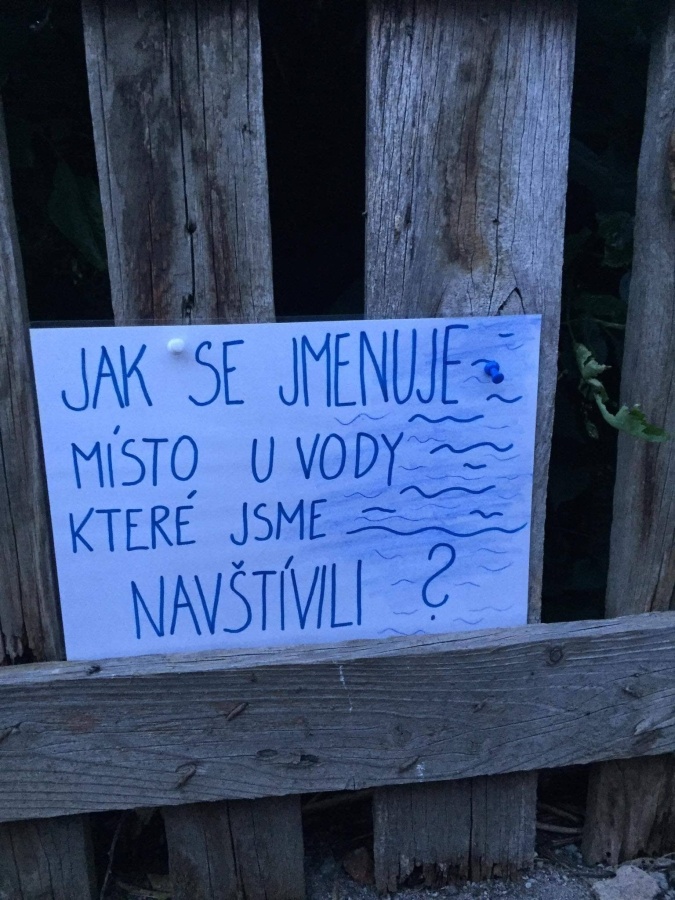 JAK SE JMENUJE
MÍSTO U VODY
KTERÉ JSME
NAVŠTÍVILI ?